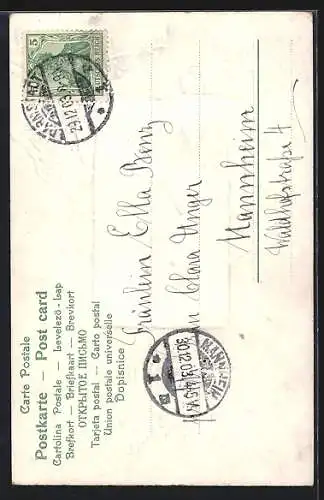 Carte Postale
Postkarte — Post card
Cartolina Postale — Levelező-Lap
Brefkort — Briefkaart — Brevkort
ОТКРЫТОЕ ПИСЬМО
Tarjeta postal — Carto postal
Union postale universelle
Dopisnice
5
Fräulein Ella Benz
Clara Unger
Mannheim
Waldhofstraße 4
29.12.03
MANNHEIM
30.12.03
1